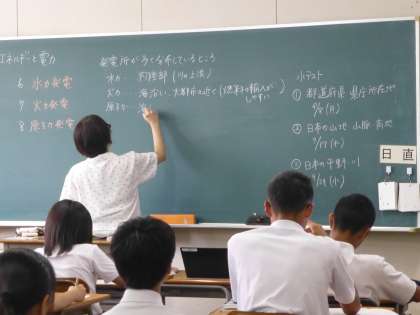 エネルギーと電力
6 水力発電
7 火力発電
8 原子力発電
発電所が多く分布しているところ
水力…内陸部(川の上流)
火力…海沿い、大都市の近く(燃料の輸入がしやすい)
原子力…海
小テスト
① 都道府県 県庁所在地
② 日本の山地 山脈 高地
③ 日本の平野
日直